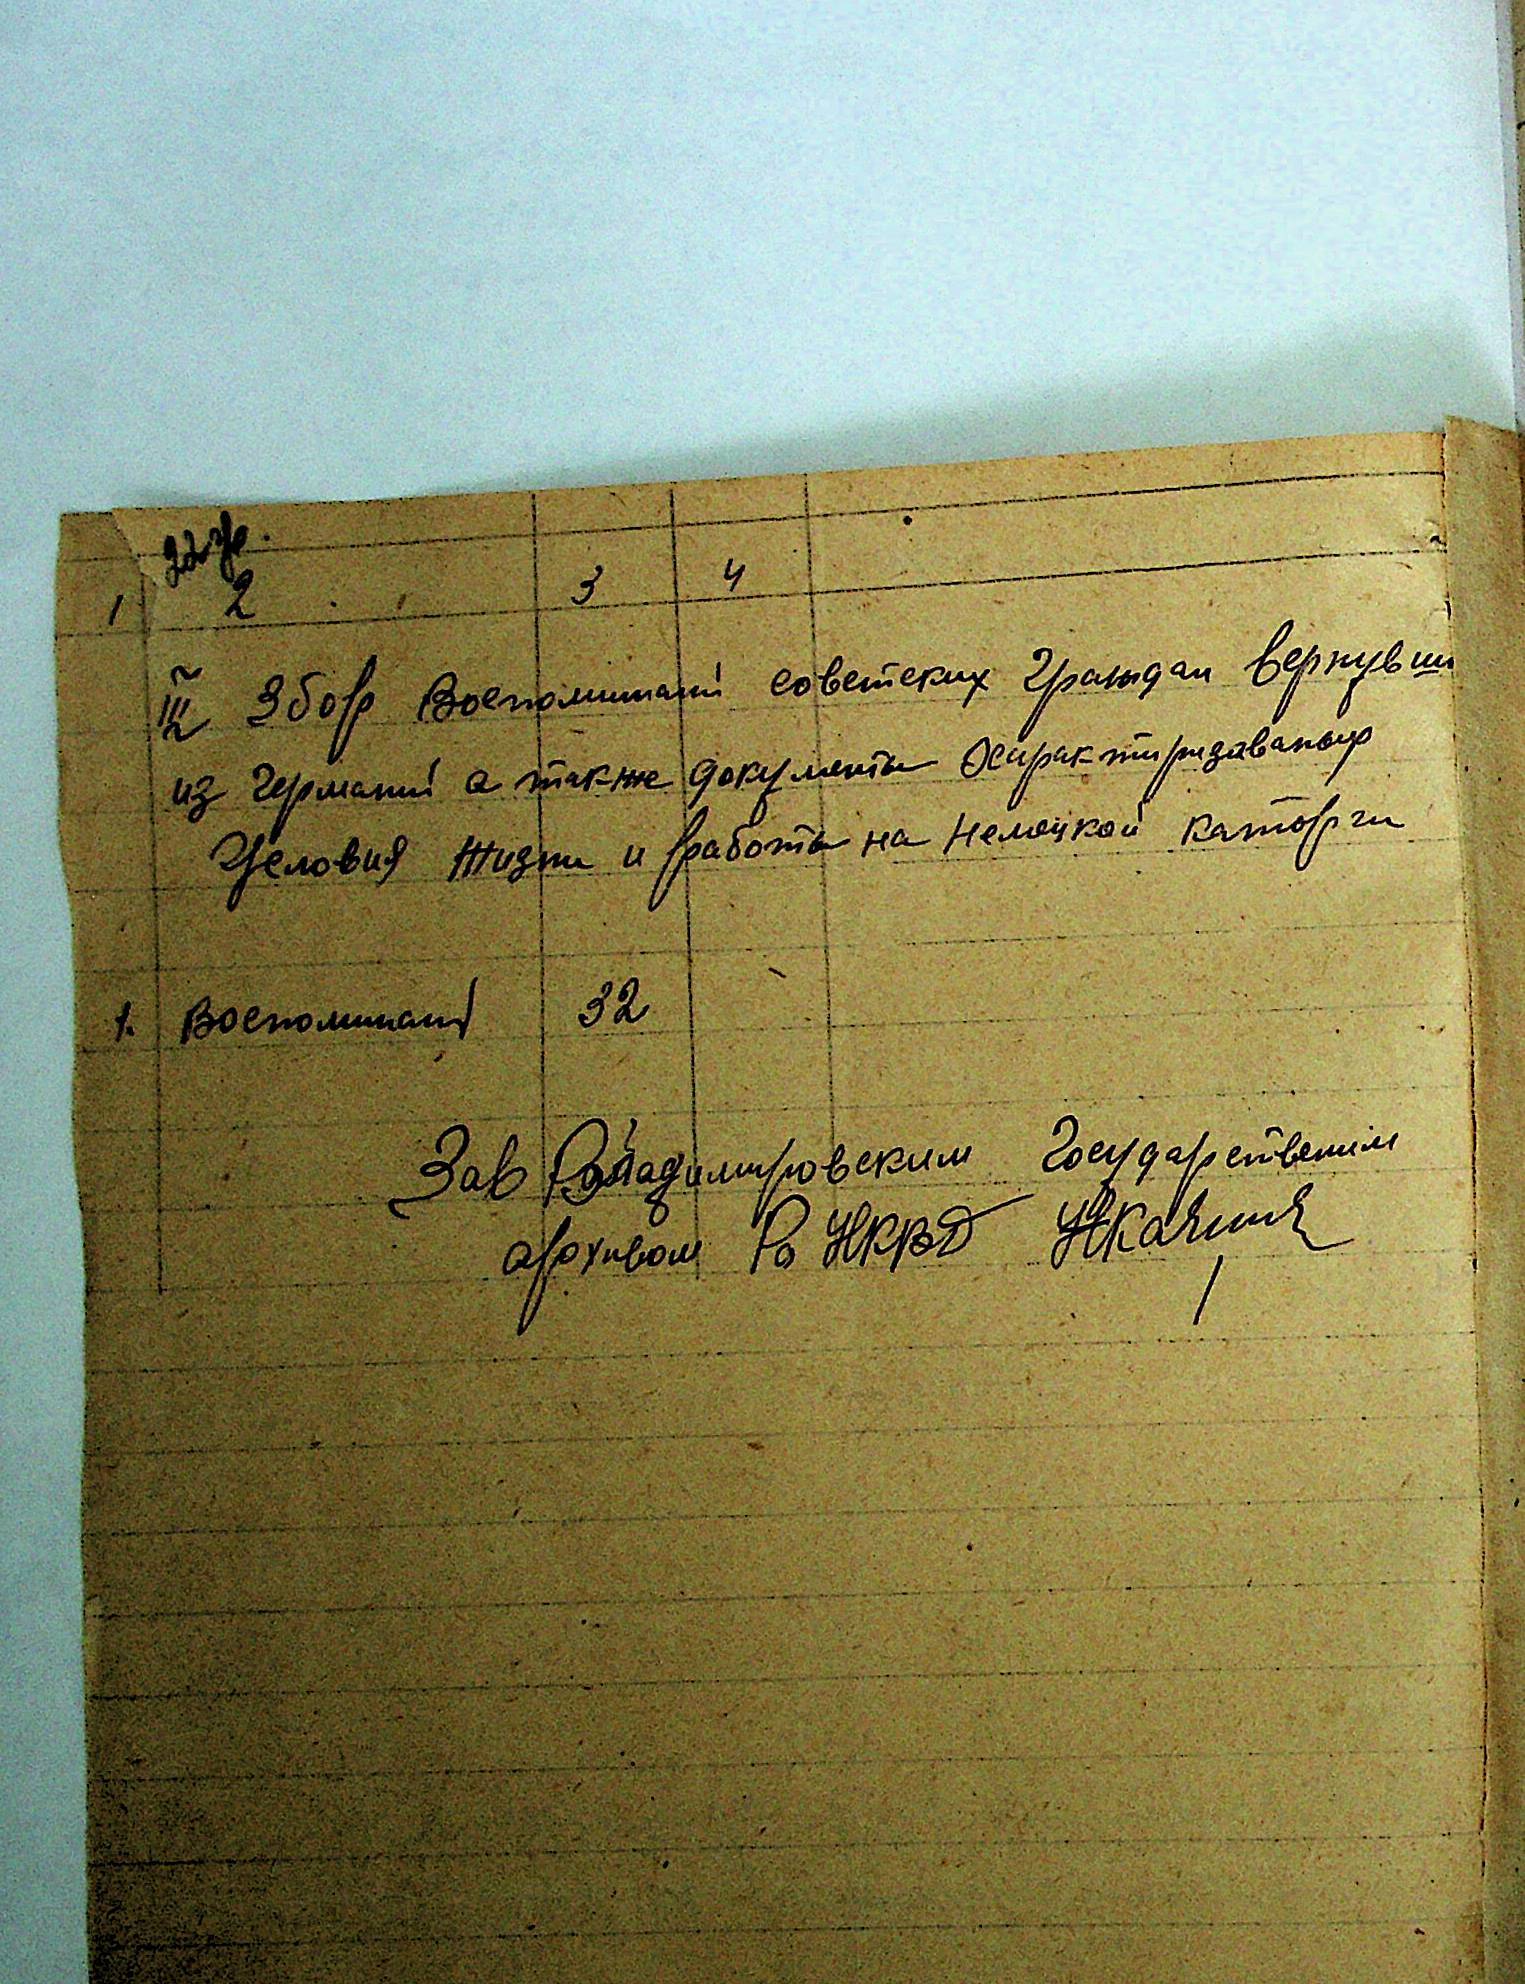 1 2 3 4
III Збор Воспоминаній советских Граждан вернувши
из Германій а также документы Характиризованыр
Условия жизни и работы на Немецкой каторги
1. Воспоминаній 32
Зав Владимировским Государственим
архивом Ро НКВД